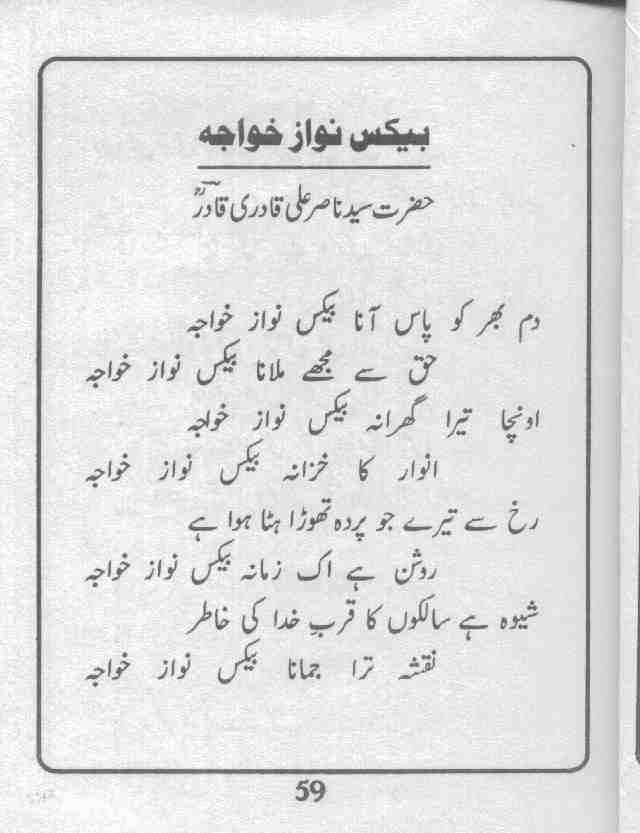 بیکس نواز خواجہ
حضرت سید ناصر علی قادری قادرؔؒ
دم بھر کو پاس آنا بیکس نواز خواجہ
حق سے مجھے ملانا بیکس نواز خواجہ
اونچا تیرا گھرانہ بیکس نواز خواجہ
انوار کا خزانہ بیکس نواز خواجہ
رخ سے تیرے جو پردہ تھوڑا ہٹا ہوا ہے
روشن ہے اک زمانہ بیکس نواز خواجہ
شیوہ ہے سالکوں کا قربِ خدا کی خاطر
نقشہ ترا جمانا بیکس نواز خواجہ
59